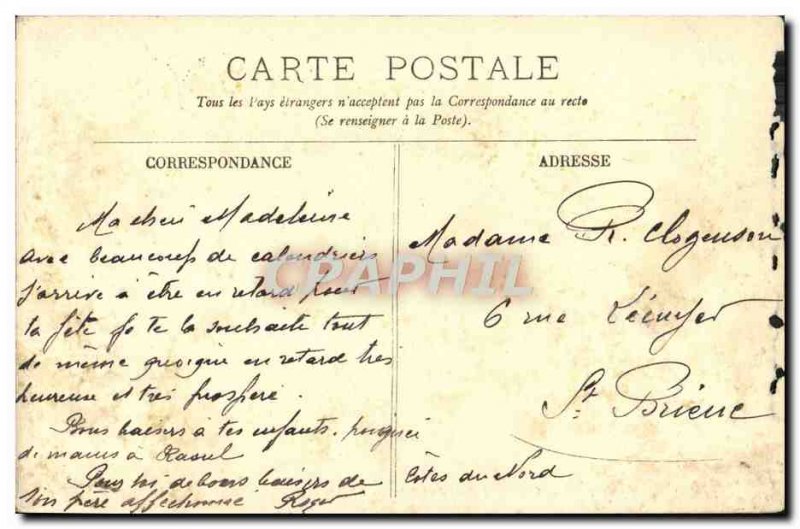 CARTE POSTALE
Tous les Pays étrangers n'acceptent pas la Correspondance au recto
(Se renseigner à la Poste).
CORRESPONDANCE
Ma cheri Madeleine
avec beaucoup de calendriers
j'arrive à être en retard pour
ta fête je te la souhaite tout
de même quoique en retard très
heureuse et très prospère.
Bons baisers à tes enfants, poignée
de mains à Raoul
Pour toi de bons baisers de
ton père affectionné Roger
ADRESSE
Madame R. Clogenson
6 rue Lécuyer
St. Brieuc
Côtes du Nord
CPRAPHIL